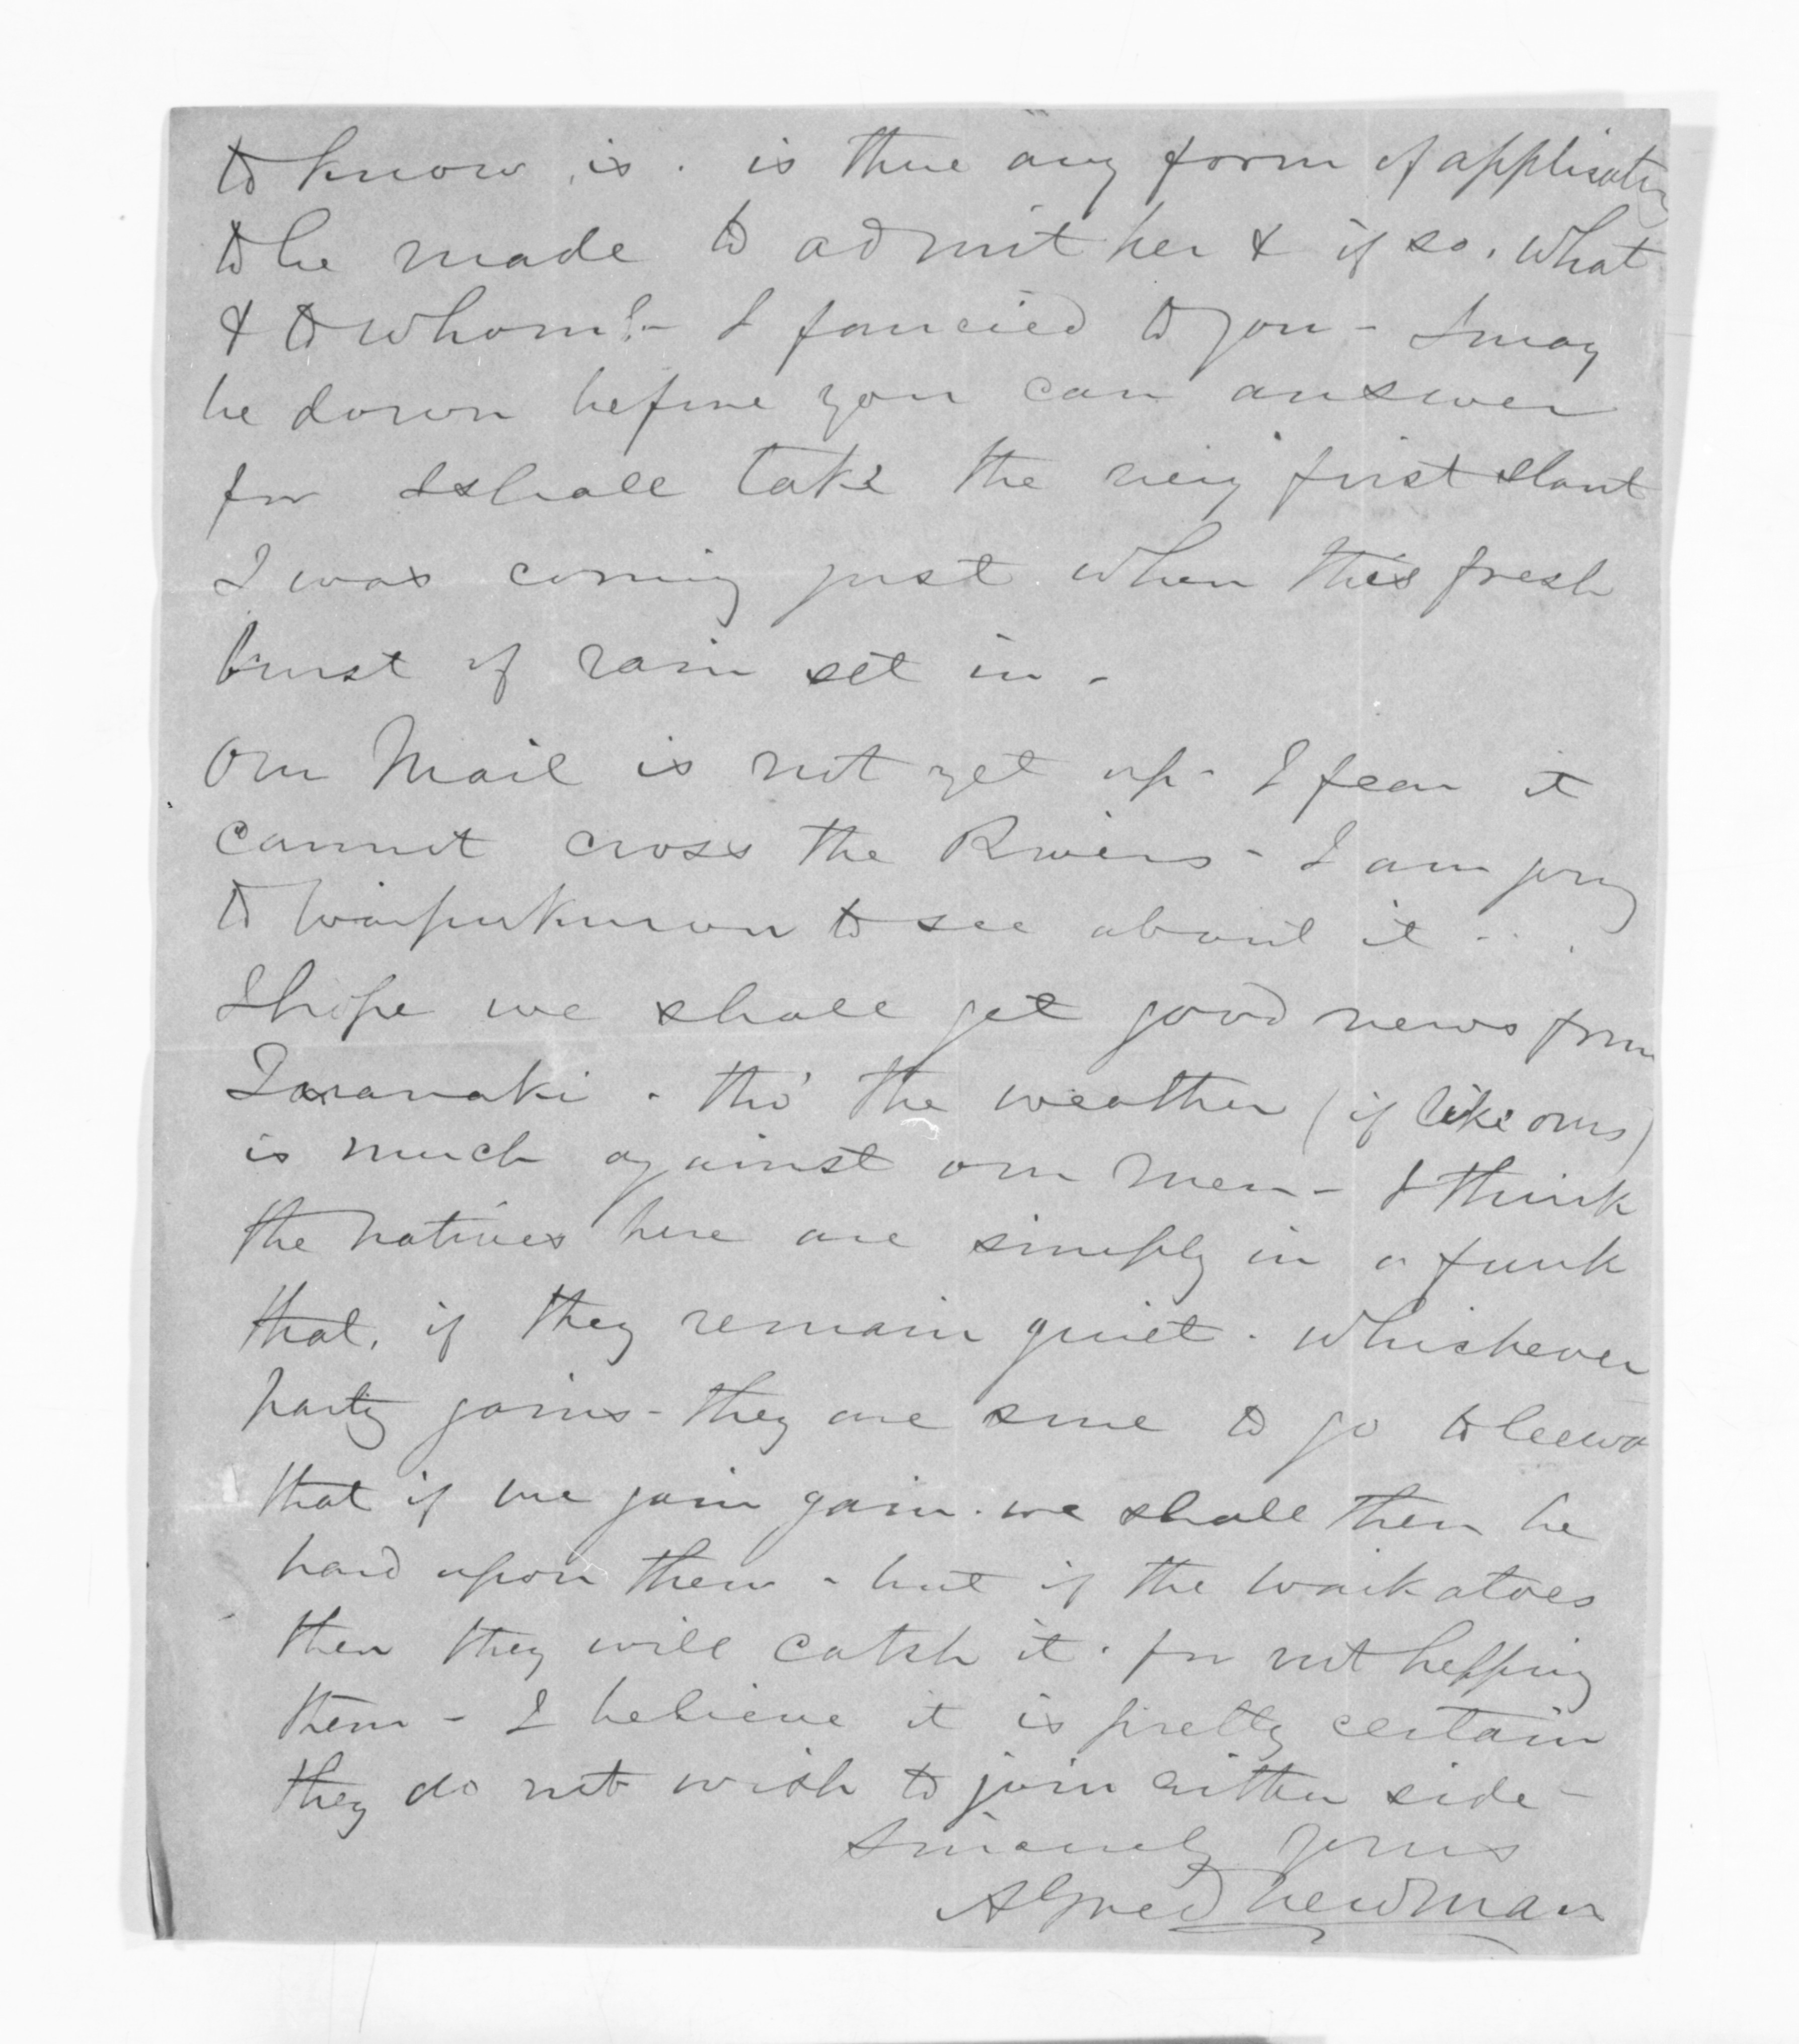 to know, is. is there any form of application
to be made to admit her & if so. what
& to whom? - I fancied to you - I may
be down before you can answer
for I shall take the very first slant
I was coming just when this fresh
burst of rain set in -
Our Mail is not yet up - I fear it
cannot cross the Rivers - I am going
to Waipukurau to see about it -
I hope we shall get good news from
Taranaki - tho' the weather (if like ours)
is much against our men - I think
the natives here are simply in a funk
that, if they remain quiet. whichever
party gains - they are sure to go to leewa
that if we gain. we shall then be
hard upon them - but if the Waikatoes
then they will catch it. for not helping
them - I believe it is pretty certain
they do not wish to join either side -
Sincerely yours
Alfred Newman